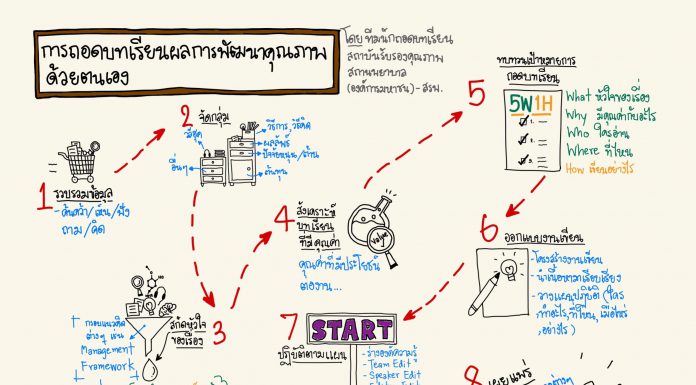 การถอดบทเรียนผลการพัฒนาคุณภาพ
ด้วยตนเอง
โดย ทีมนักถอดบทเรียน
สถาบันรับรองคุณภาพ
สถานพยาบาล
(องค์การมหาชน) - สรพ.
1
รวบรวมข้อมูล
- ค้นคว้า/เห็น/ฟัง
ถาม/คิด
2
จัดกลุ่ม
วิธีการ, วิธีคิด
ผลลัพธ์
ปัจจัยหนุน/ต้าน
ต้นทุน
อื่นๆ
3
สกัดหัวใจ
ของเรื่อง
กรอบแนวคิด
ต่างๆ เช่น
Management
Framework
4
สังเคราะห์
บทเรียน
ที่มีคุณค่า
คุณค่าที่มีประโยชน์
ต่องาน...
Value
5
ทบทวนเป้าหมายการ
ถอดบทเรียน
5W1H
1.
2.
3.
What หัวใจของเรื่อง
Why มีคุณค่ากับอะไร
Who ใครอ่าน
Where ที่ไหน
How เขียนอย่างไร
6
ออกแบบงานเขียน
- โครงสร้างงานเขียน
- นำเนื้อหามาเรียบเรียง
- วางแผนปฏิบัติ (ใคร
ทำอะไร, ที่ไหน, เมื่อไหร่
, อย่างไร)
7
START
ปฏิบัติตามแผน
- ร่างองค์ความรู้
- Team Edit
- Speaker Edit
8
เผยแพร่